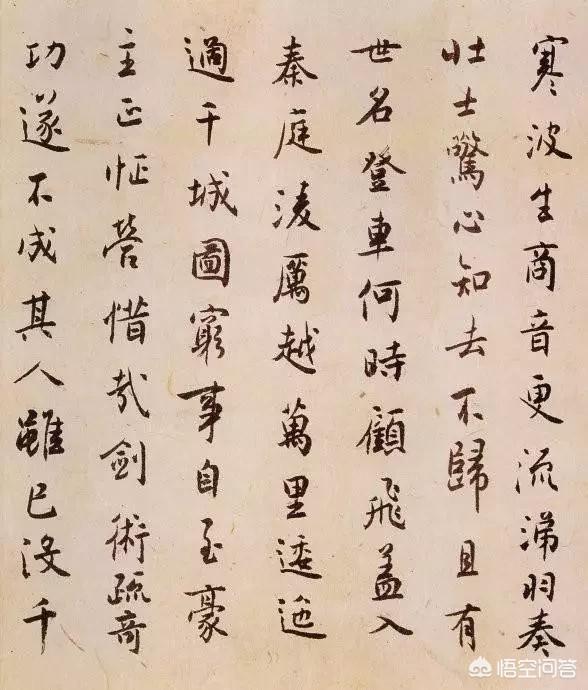 寒波生商音更流涕羽奏
壯士驚心知去不歸且有
世名登車何時顧飛蓋入
秦庭淩厲越萬里逶迤
過千城圖窮事自至豪
主正怔營惜哉劍術疏奇
功遂不成其人雖已沒千
悟空问答